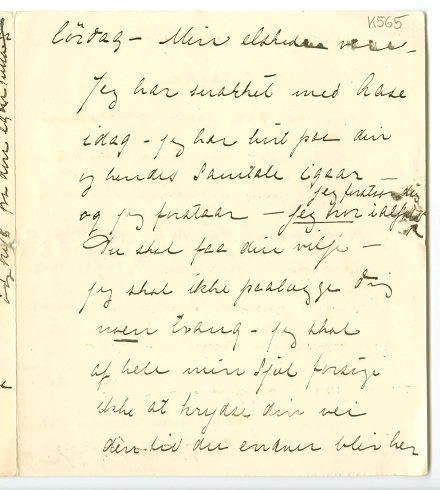 K565
Lördag – Min elskede ven –
Jeg har snakket med Aase
idag – jeg har hört paa din
og hendes Samtale igaar –
jeg forstaar dig
og jeg forstaar – jeg tror ialfald
Du skal faa din vilje –
jeg skal ikke paalægge dig
noen tvang – jeg skal
af hele min Sjæl forsöge
ikke at krydse din vei
den tid du endnu blir her